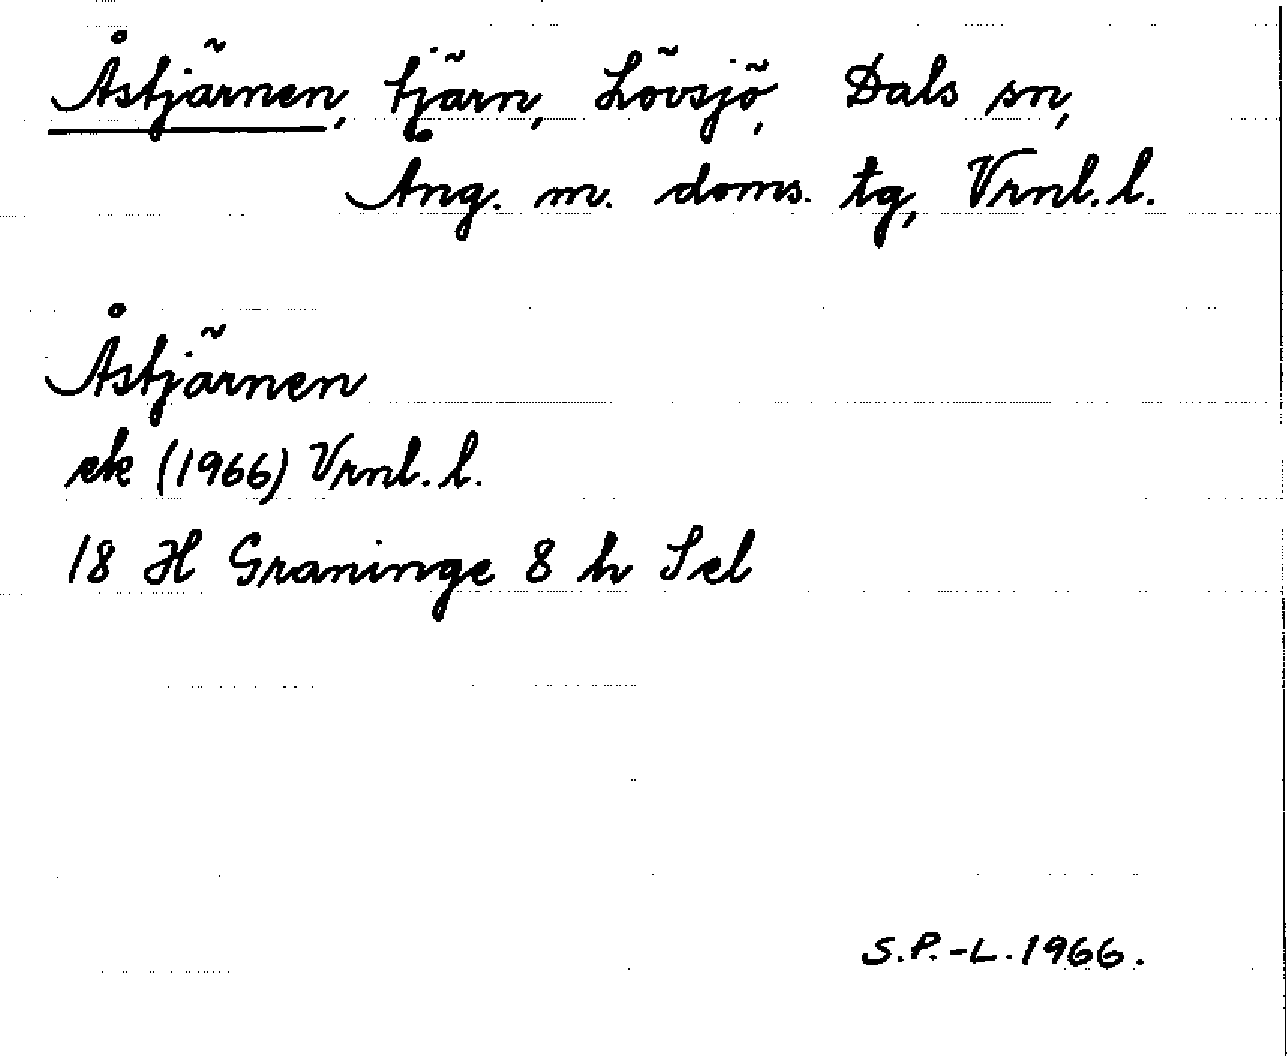 Åstjärnen, tjärn, Lövsjö, Dals sn,
Ång. m. doms. tg, Vrnl. l.
Åstjärnen
ek (1966) Vrnl. l.
18 H Graninge 8 h Sel
S.P.-L. 1966.